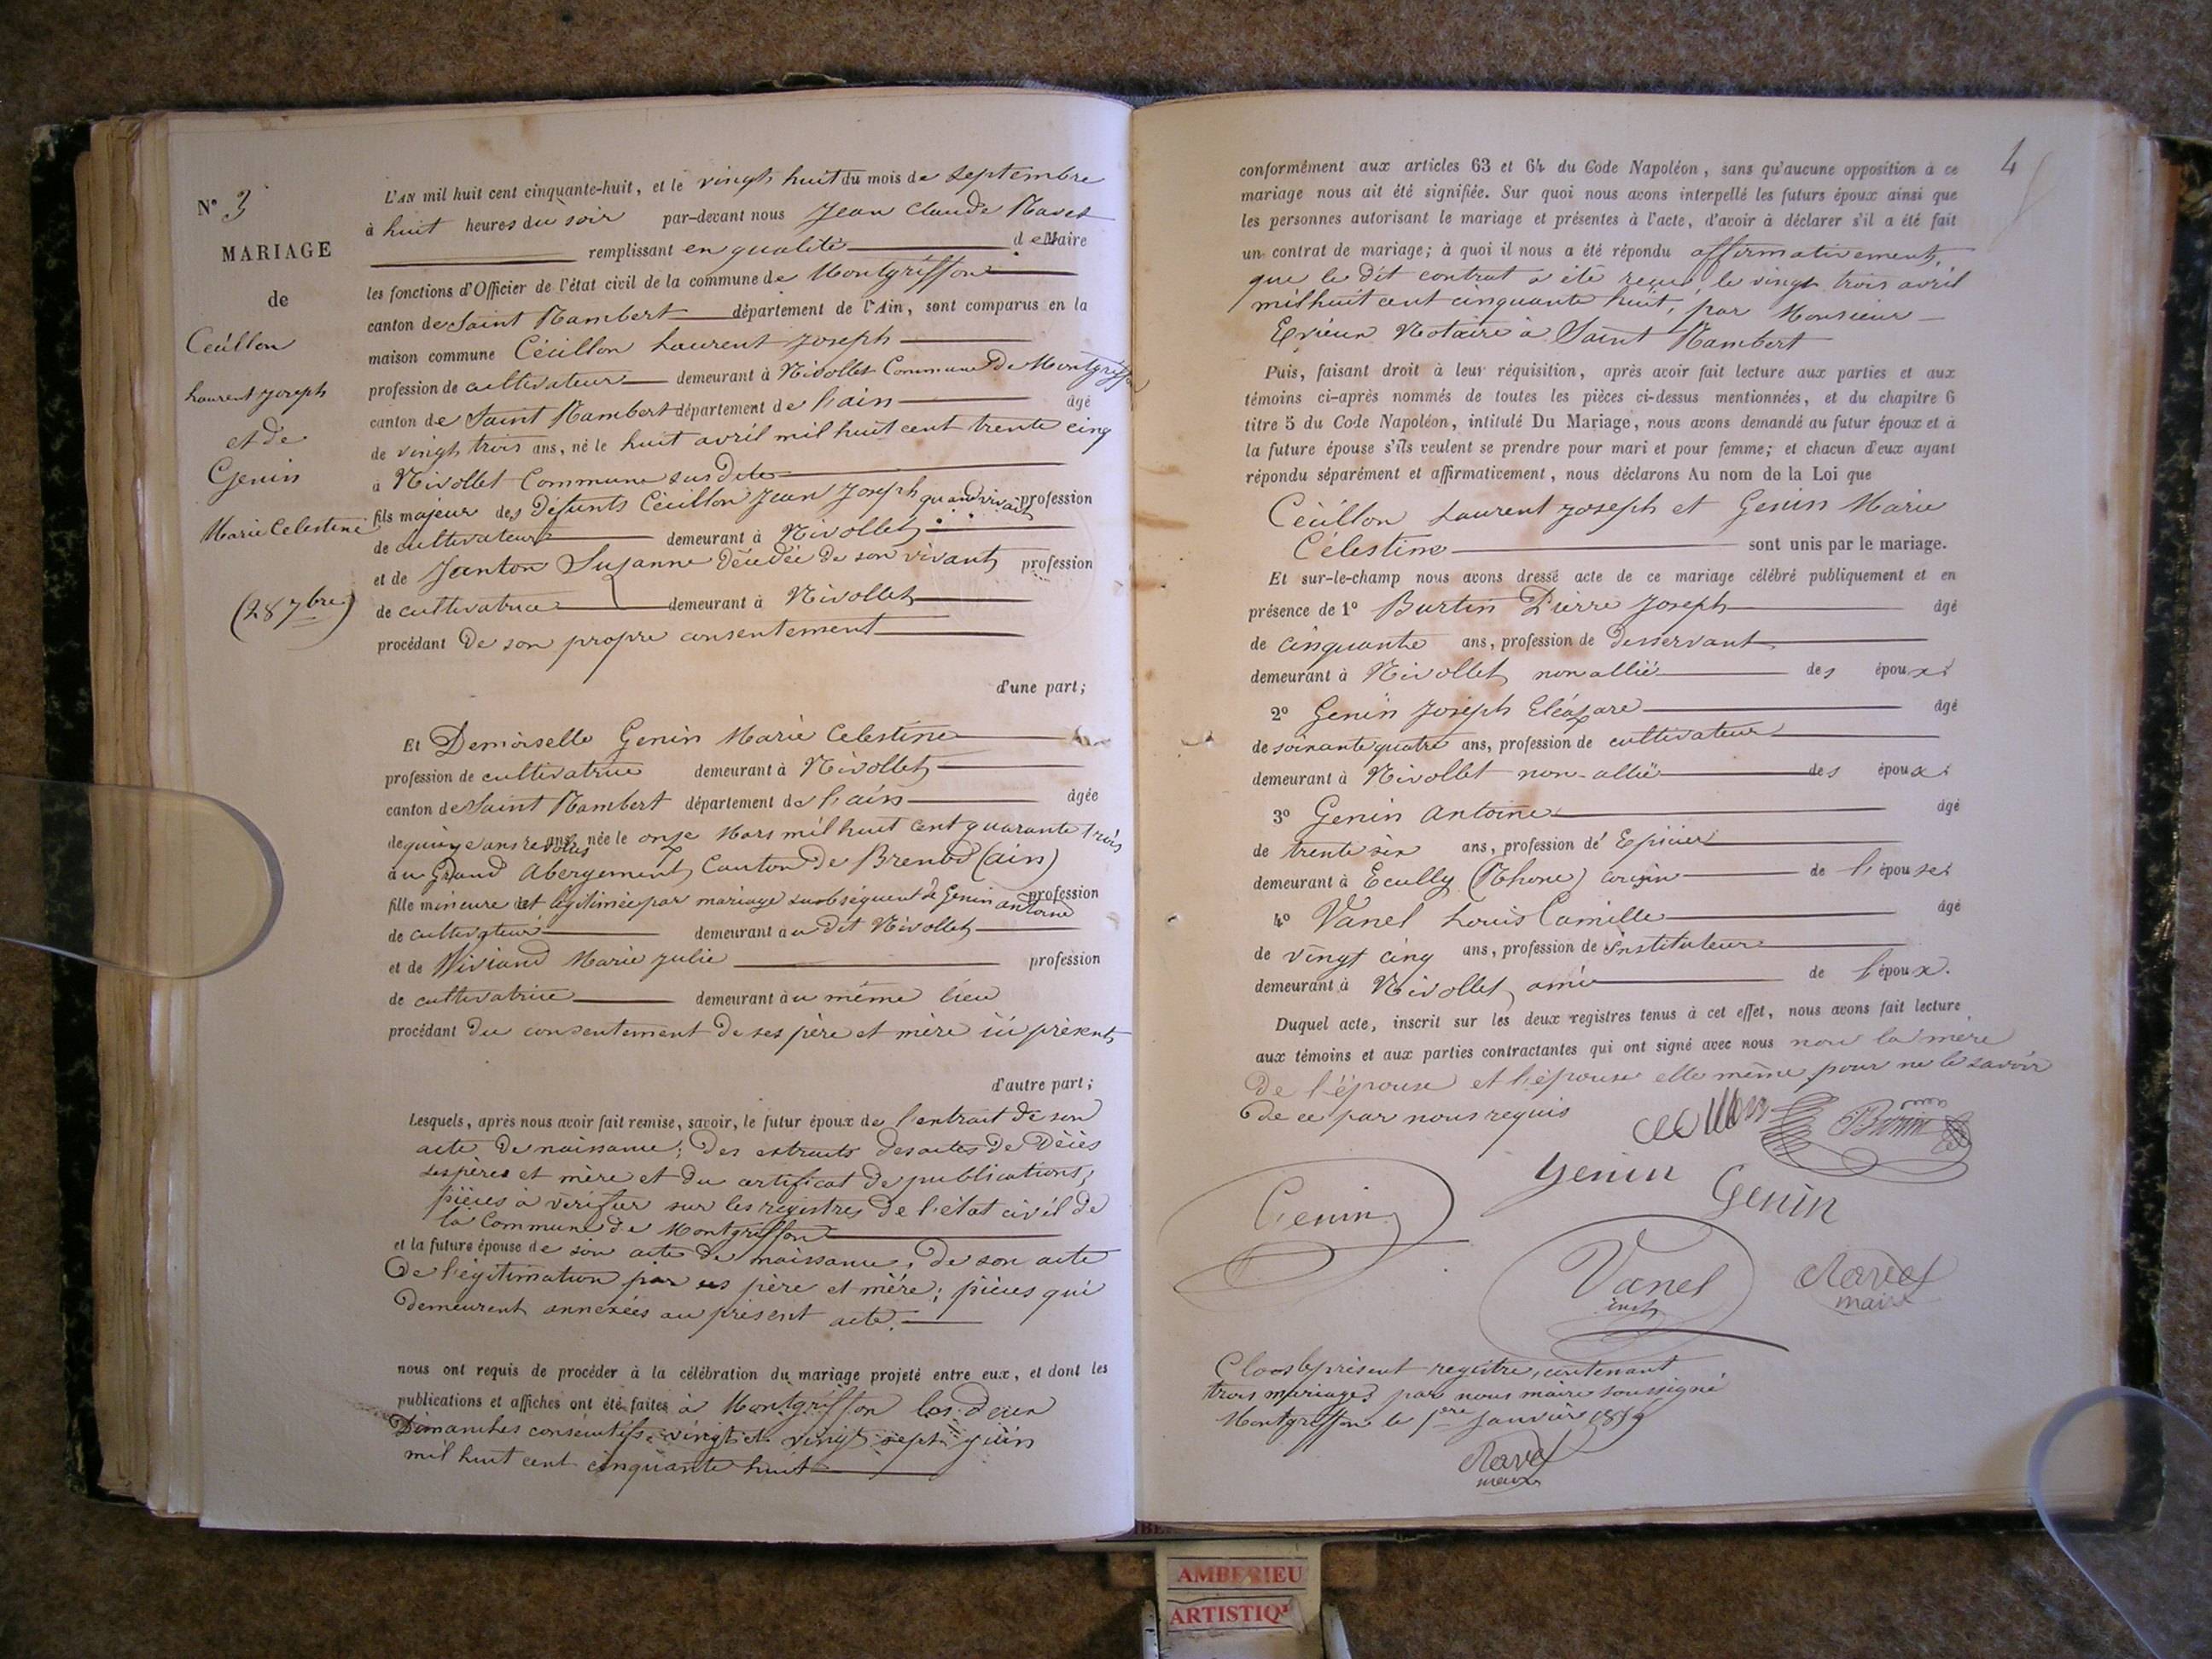 N° 3
MARIAGE
de
Ceüllon
Laurent Joseph
et de
Genin
Marie Celestine
(28 7bre)
L'AN mil huit cent cinquante-huit, et le vingt huit du mois de septembre
à huit heures du soir par-devant nous Jean Claude Ravet
remplissant en qualité de Maire
les fonctions d'Officier de l'état civil de la commune de Montgriffon
canton de Saint Rambert département de l'Ain, sont comparus en la
maison commune Céüllon Laurent Joseph
profession de cultivateur demeurant à Nivollet Commune De Montgriffon
canton de Saint Rambert département de l'ain âgé
de vingt trois ans, né le huit avril mil huit cent trente cinq
à Nivollet Commune sus dite
fils majeur des Défunts Céüllon Jean Joseph quand vivait profession
de cultivateur demeurant à Nivollet
et de Janton Suzanne Décédée De son vivant profession
de cultivatrice demeurant à Nivollet
procédant De son propre consentement
d'une part;
Et Demoiselle Genin Marie Celestine
profession de cultivatrice demeurant à Nivollet
canton de Saint Rambert département de l'ain âgée
de quinze ans revolus ans, née le onze Mars mil huit cent quarante trois
au Grand Abergement Canton De Brenod (ain)
fille mineure et légitimée par mariage subséquent de Genin antoine profession
de cultivateur demeurant au Dit Nivollet
et de Viviand Marie Julie profession
de cultivatrice demeurant au même lieu
procédant Du consentement De ses père et mère ici présents
d'autre part;
Lesquels, après nous avoir fait remise, savoir, le futur époux de l'extrait De son
acte De naissance; Des extraits des actes De Décès
ses père et mère et Du certificat De publications,
pièces à vérifier sur les registres De l'état civil De
la Commune De Montgriffon
et la future épouse de son acte De naissance, De son acte
De légitimation par ses père et mère; pièces qui
Demeurent annexées au présent acte.
nous ont requis de procéder à la célébration du mariage projeté entre eux, et dont les
publications et affiches ont été faites à Montgriffon les deux
Dimanches consécutifs vingt et vingt sept juin
mil huit cent cinquante huit
4
conformément aux articles 63 et 64 du Code Napoléon, sans qu'aucune opposition à ce
mariage nous ait été signifiée. Sur quoi nous avons interpellé les futurs époux ainsi que
les personnes autorisant le mariage et présentes à l'acte, d'avoir à déclarer s'il a été fait
un contrat de mariage; à quoi il nous a été répondu affirmativement,
que le dit contrat a été reçu le vingt trois avril
mil huit cent cinquante huit, par Monsieur
Notaire à Saint Rambert
Puis, faisant droit à leur réquisition, après avoir fait lecture aux parties et aux
témoins ci-après nommés de toutes les pièces ci-dessus mentionnées, et du chapitre 6
titre 5 du Code Napoléon, intitulé Du Mariage, nous avons demandé au futur époux et à
la future épouse s'ils veulent se prendre pour mari et pour femme; et chacun d'eux ayant
répondu séparément et affirmativement, nous déclarons Au nom de la Loi que
Céüllon Laurent Joseph et Genin Marie
Célestine sont unis par le mariage.
Et sur-le-champ nous avons dressé acte de ce mariage célébré publiquement et en
présence de 1° Burtin Pierre Joseph âgé
de cinquante ans, profession de Desservant
demeurant à Nivollet non allié des époux
2° Genin Joseph Eléazare âgé
de soixante quatre ans, profession de cultivateur
demeurant à Nivollet non allié des époux
3° Genin Antoine âgé
de trente six ans, profession de Epicier
demeurant à Ecully (Rhone) cousin de l'épouse
4° Vanel Louis Camille âgé
de vingt cinq ans, profession de Instituteur
demeurant à Nivollet ami de l'époux.
Duquel acte, inscrit sur les deux registres tenus à cet effet, nous avons fait lecture
aux témoins et aux parties contractantes qui ont signé avec nous non la mère
De l'épouse et l'épouse elle même pour ne le savoir
De ce par nous requis
ceüllon
Burtin
Genin
Genin
Genin
Vanel
inst
Ravet
maire
Clos le présent registre, contenant
trois mariages par nous maire soussigné
Montgriffon le 1ere Janvier 1859
Ravet
maire
AMBERIEU
ARTISTIQU